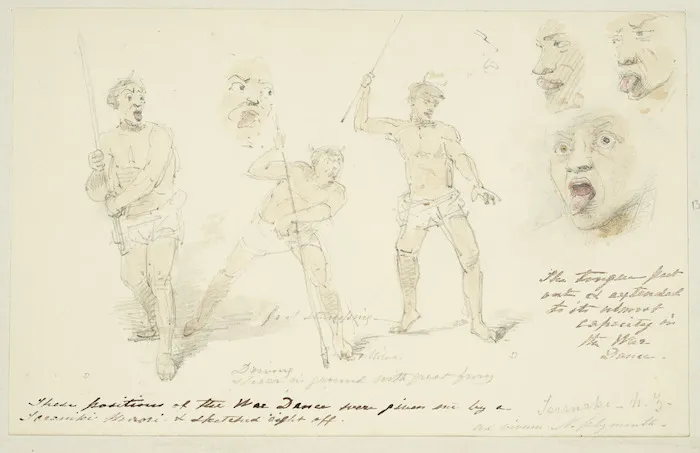 The tongue put
out & extended
to its utmost
capacity in
the War
Dance.
foot stamping
Driving
spear in ground with great fury
These positions of the War Dance were given me by a
Taranaki Maori & sketched right off.
Taranaki - N. Z.
N. Plymouth -